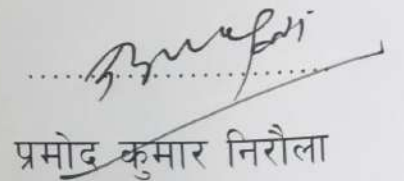 प्रमोद कुमार निरौला